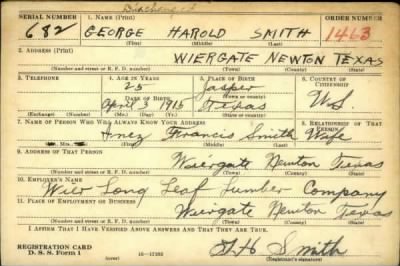 Discharged
SERIAL NUMBER 1. NAME (Print) ORDER NUMBER
682 GEORGE HAROLD SMITH 1463
(First) (Middle) (Last)
2. ADDRESS (Print)
WIERGATE NEWTON TEXAS
(Number and street or R. F. D. number) (Town) (County) (State)
3. TELEPHONE 4. AGE IN YEARS 5. PLACE OF BIRTH 6. COUNTRY OF CITIZENSHIP
25 Jasper
DATE OF BIRTH (Town or county)
April 3 1915 Texas U.S.
(Exchange) (Number) (Mo.) (Day) (Yr.) (State or country)
7. NAME OF PERSON WHO WILL ALWAYS KNOW YOUR ADDRESS 8. RELATIONSHIP OF THAT PERSON
Mrs. Inez Francis Smith Wife
(First) (Middle) (Last)
9. ADDRESS OF THAT PERSON
Wiergate Newton Texas
(Number and street or R. F. D. number) (Town) (County) (State)
10. EMPLOYER'S NAME
Wier Long Leaf Lumber Company
11. PLACE OF EMPLOYMENT OR BUSINESS
Wiergate Newton Texas
(Number and street or R. F. D. number) (Town) (County) (State)
I AFFIRM THAT I HAVE VERIFIED ABOVE ANSWERS AND THAT THEY ARE TRUE.
REGISTRATION CARD
D. S. S. Form 1 (over) 16-17105 G H Smith
(Registrant's signature)